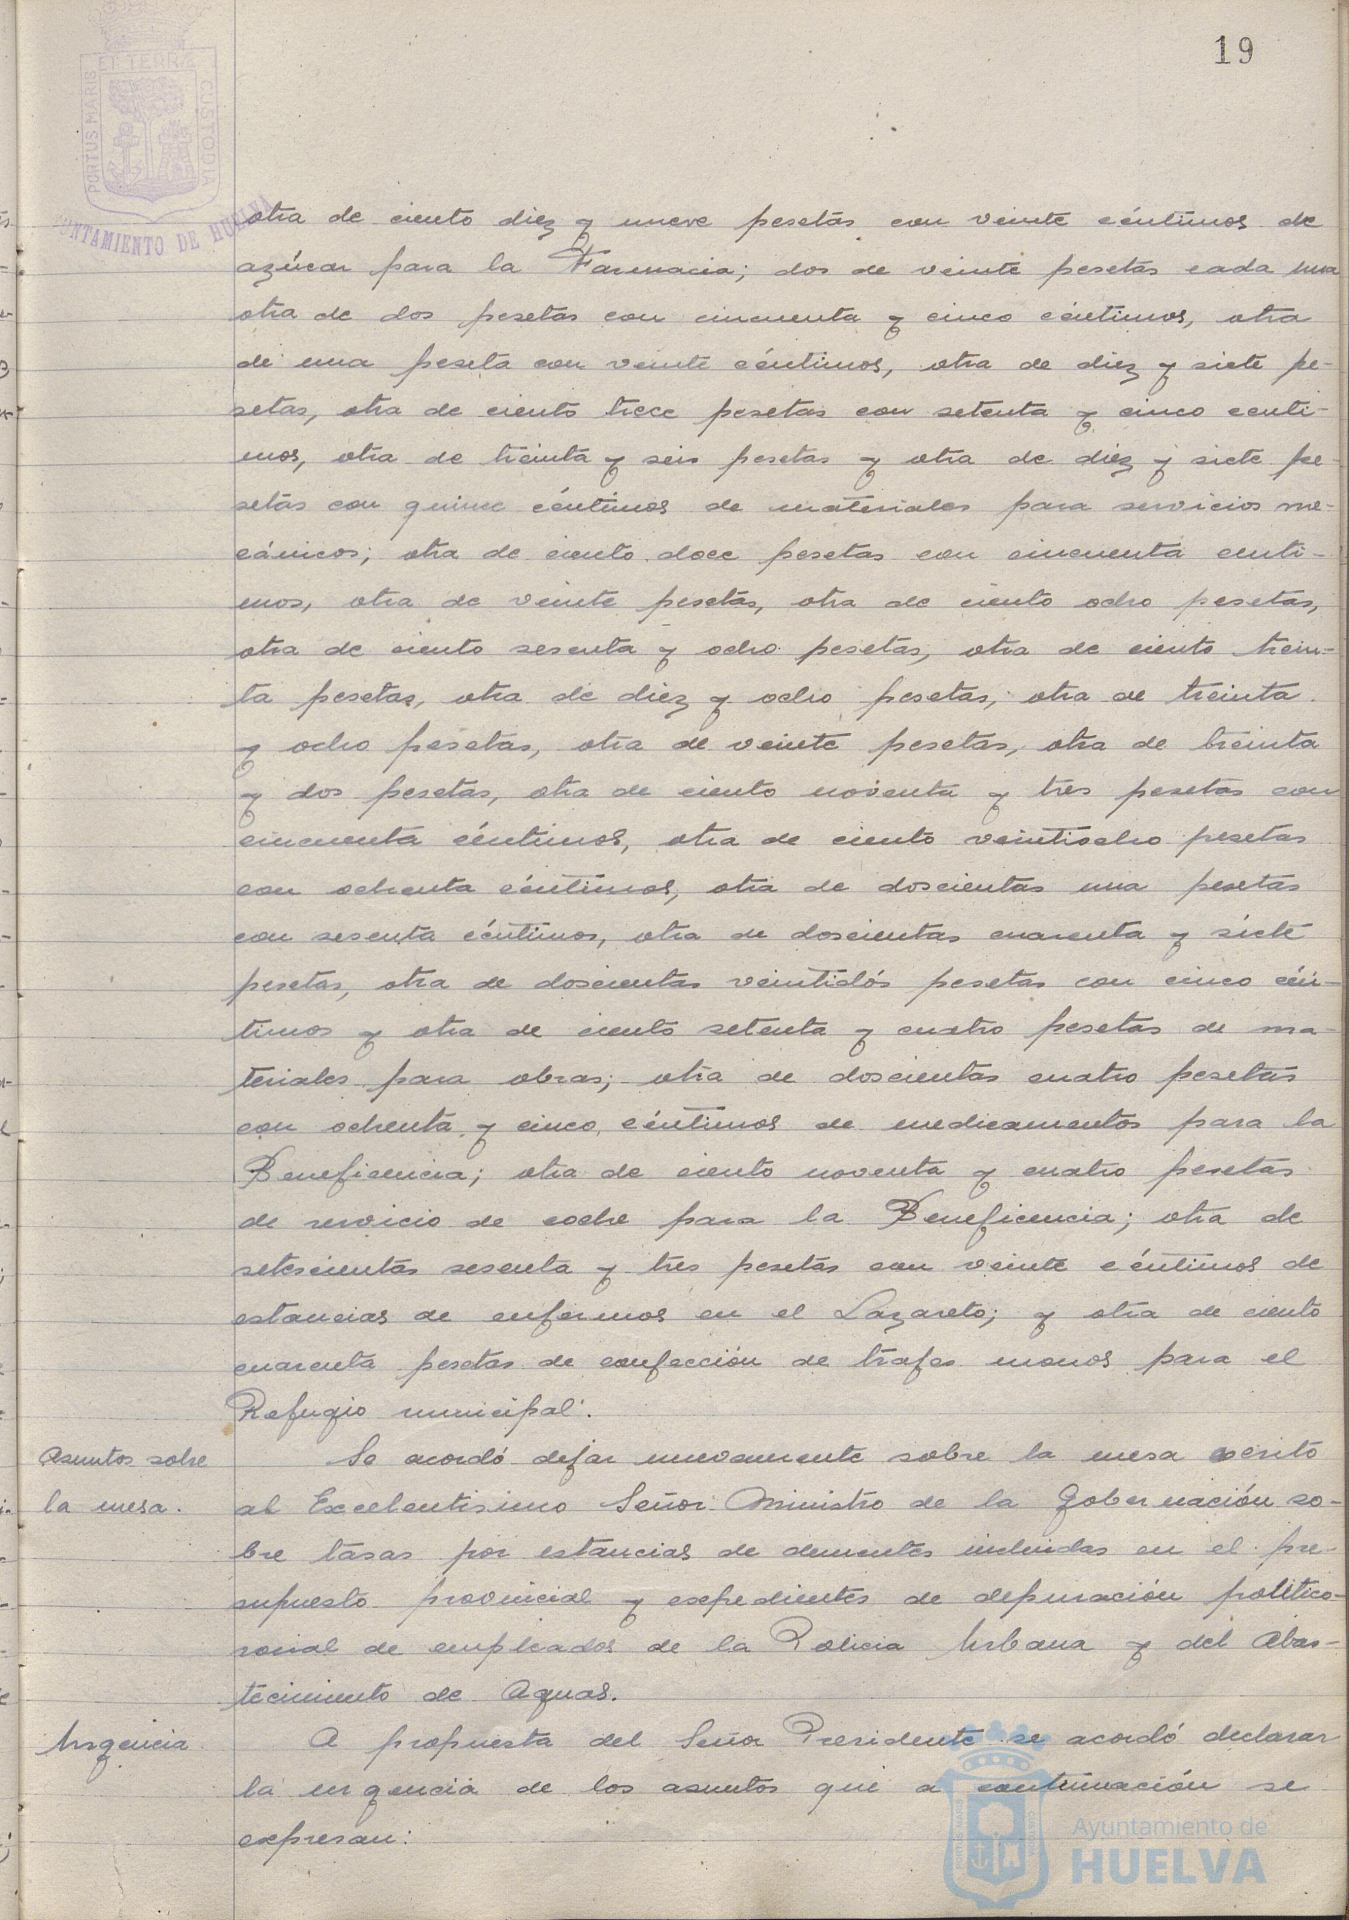 19
PORTUS MARIS ET TERRÆ CUSTODIA
UNTAMIENTO DE HUELVA
otra de ciento diez y nueve pesetas con veinte céntimos de
azúcar para la Farmacia; dos de veinte pesetas cada una
otra de dos pesetas con cincuenta y cinco céntimos, otra
de una peseta con veinte céntimos, otra de diez y siete pe-
setas, otra de ciento trece pesetas con setenta y cinco centi-
mos, otra de treinta y seis pesetas y otra de diez y siete pe-
setas con quince céntimos de materiales para servicios me-
cánicos; otra de ciento doce pesetas con cincuenta centi-
mos, otra de veinte pesetas, otra de ciento ocho pesetas,
otra de ciento sesenta y ocho pesetas, otra de ciento trein-
ta pesetas, otra de diez y ocho pesetas, otra de treinta
y ocho pesetas, otra de veinte pesetas, otra de treinta
y dos pesetas, otra de ciento noventa y tres pesetas con
cincuenta céntimos, otra de ciento veintiocho pesetas
con ochenta céntimos, otra de doscientas una pesetas
con sesenta céntimos, otra de doscientas cuarenta y siete
pesetas, otra de doscientas veintidós pesetas con cinco cén-
timos y otra de ciento setenta y cuatro pesetas de ma-
teriales para obras; otra de doscientas cuatro pesetas
con ochenta y cinco céntimos de medicamentos para la
Beneficencia; otra de ciento noventa y cuatro pesetas
de servicio de coche para la Beneficencia; otra de
setescientas sesenta y tres pesetas con veinte céntimos de
estancias de enfermos en el Lazareto; y otra de ciento
cuarenta pesetas de confección de trajes monos para el
Refugio municipal.
Asuntos sobre
la mesa.
Se acordó dejar nuevamente sobre la mesa escrito
al Excelentisimo Señor Ministro de la Gobernación so-
bre tasas por estancias de dementes incluidas en el pre-
supuesto provincial y expedientes de depuración politico-
social de empleados de la Policia Urbana y del Abas-
tecimiento de Aguas.
Urgencia
A propuesta del Señor Presidente se acordó declarar
la urgencia de los asuntos que a continuación se
expresan:
Ayuntamiento de
HUELVA